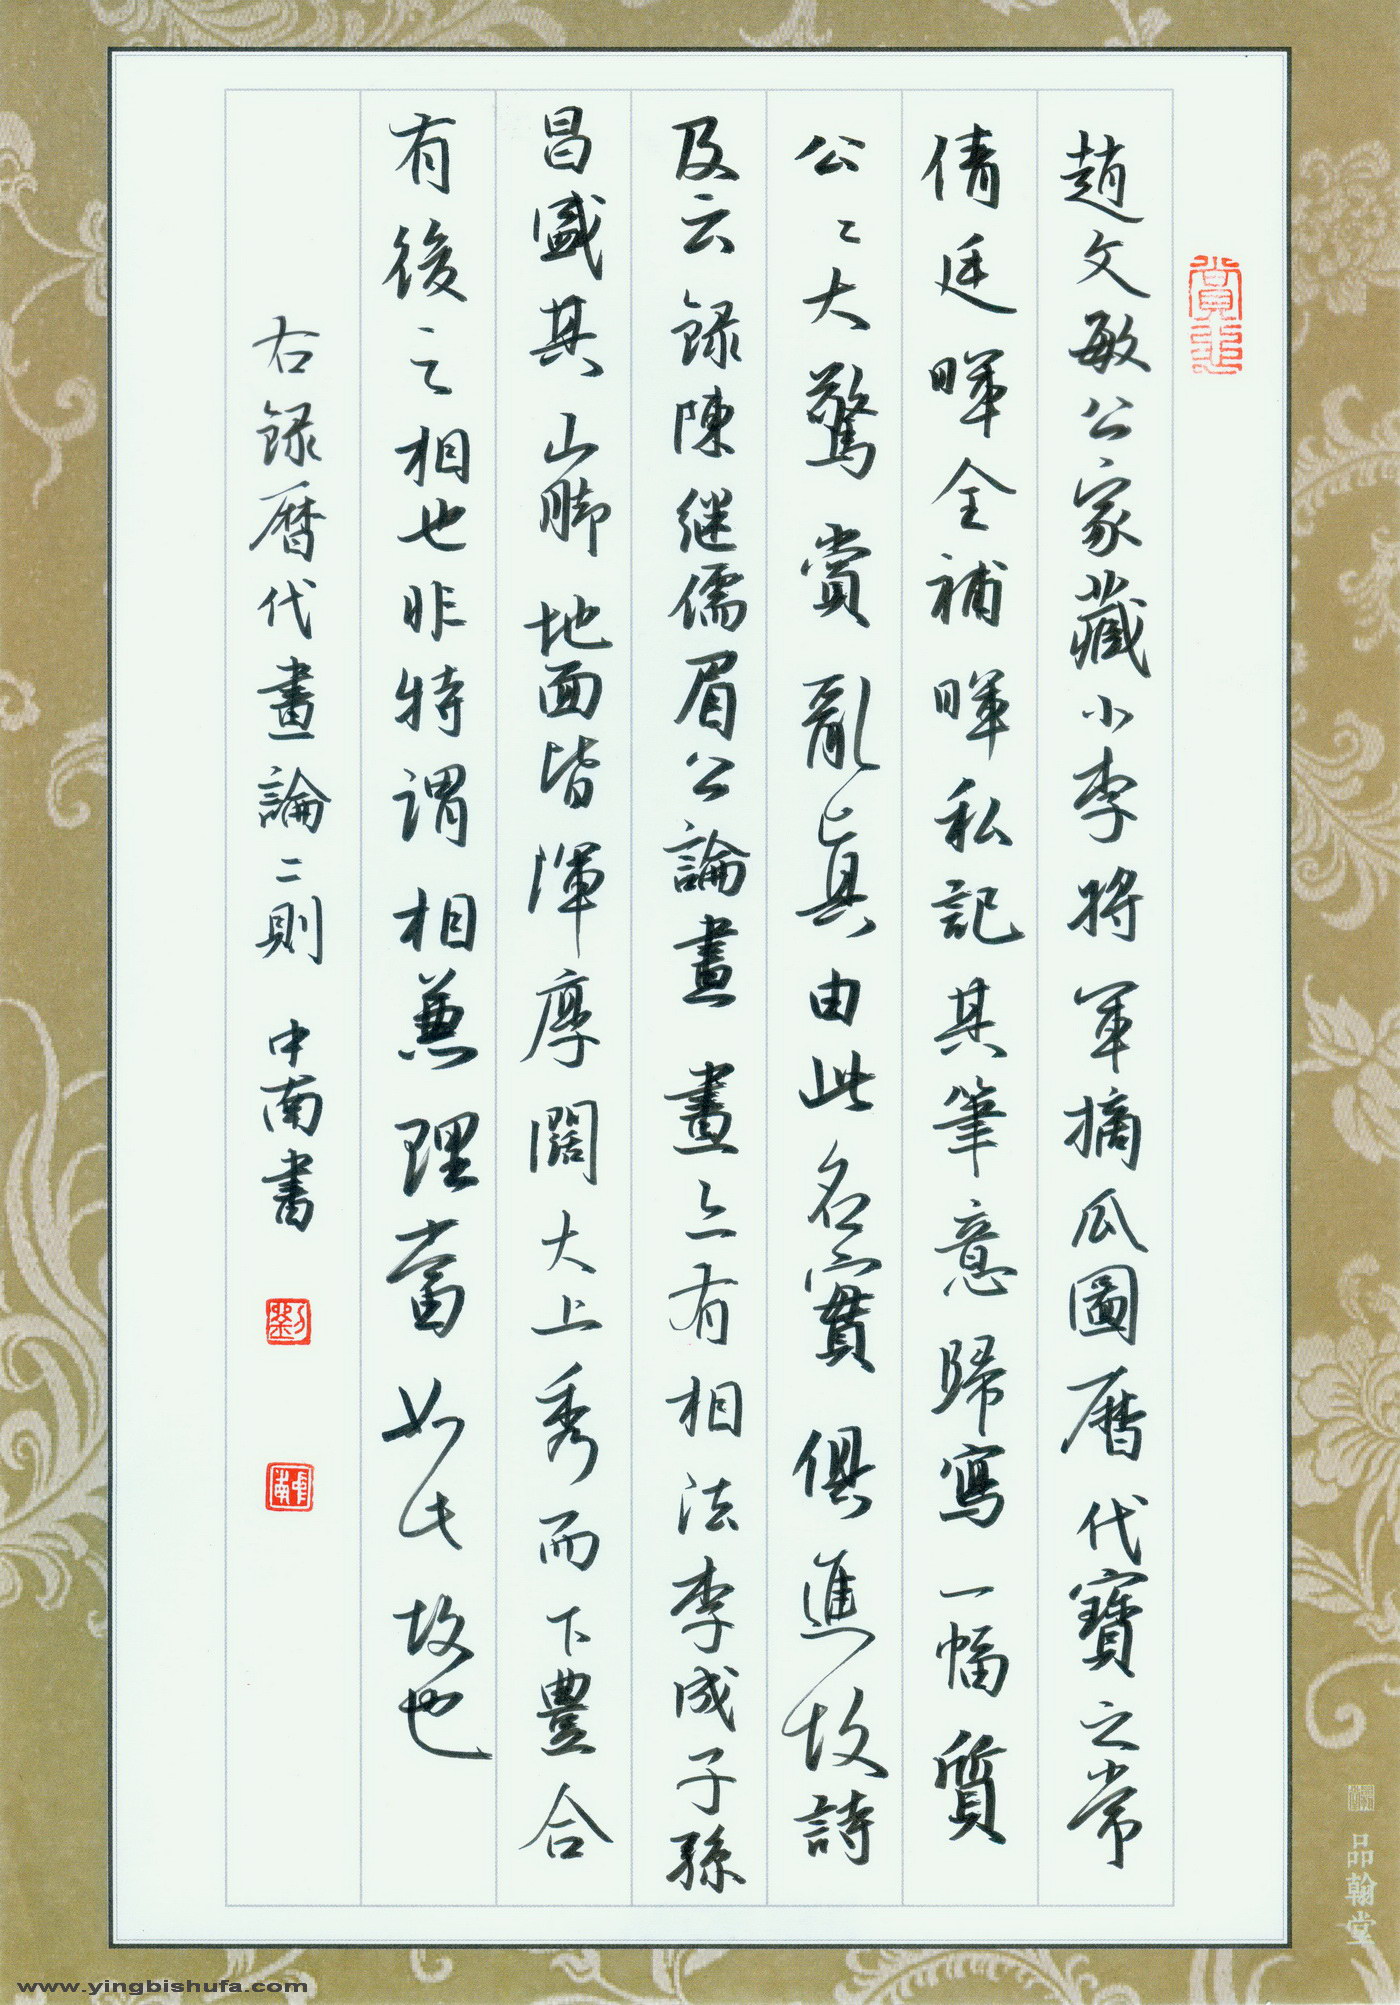 趙文敏公家藏小李將軍摘瓜圖曆代寶之常
倩廷暉全補暉私記其筆意歸寫一幅質
公〻大驚賞亂真由此名實俱進故詩
及云録陳継儒眉公論畫畫亦有相法李成子孫
昌盛其山脚地面皆渾厚闊大上秀而下豊合
有後之相也非特謂相兼理當如此故也
右録曆代畫論二則 中南書
劉
中南
品翰堂
www.yingbishufa.com